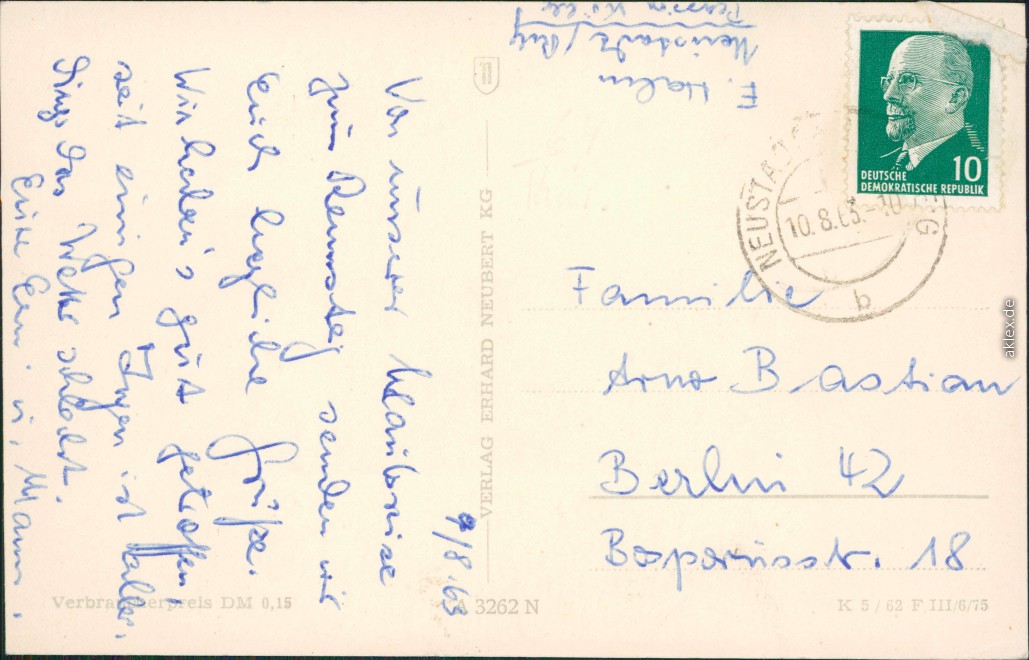 F. Halm
Neustadt / Rbg
9/8.63
Von unserer Urlaubsreise
zum Rennsteig senden wir
Euch herzliche Grüße.
Wir haben's gut getroffen,
seit einigen Tagen ist allerdings
das Wetter schlecht.
Eure
VERLAG ERHARD NEUBERT KG
DEUTSCHE
DEMOKRATISCHE REPUBLIK
10
NEUSTADT
10.8.63.-10
b
Familie
Arno Bastian
Berlin 42
Bosporusstr. 18
Verbraucherpreis DM 0,15
A 3262 N
K 5/62 F III/6/75
aklex.de